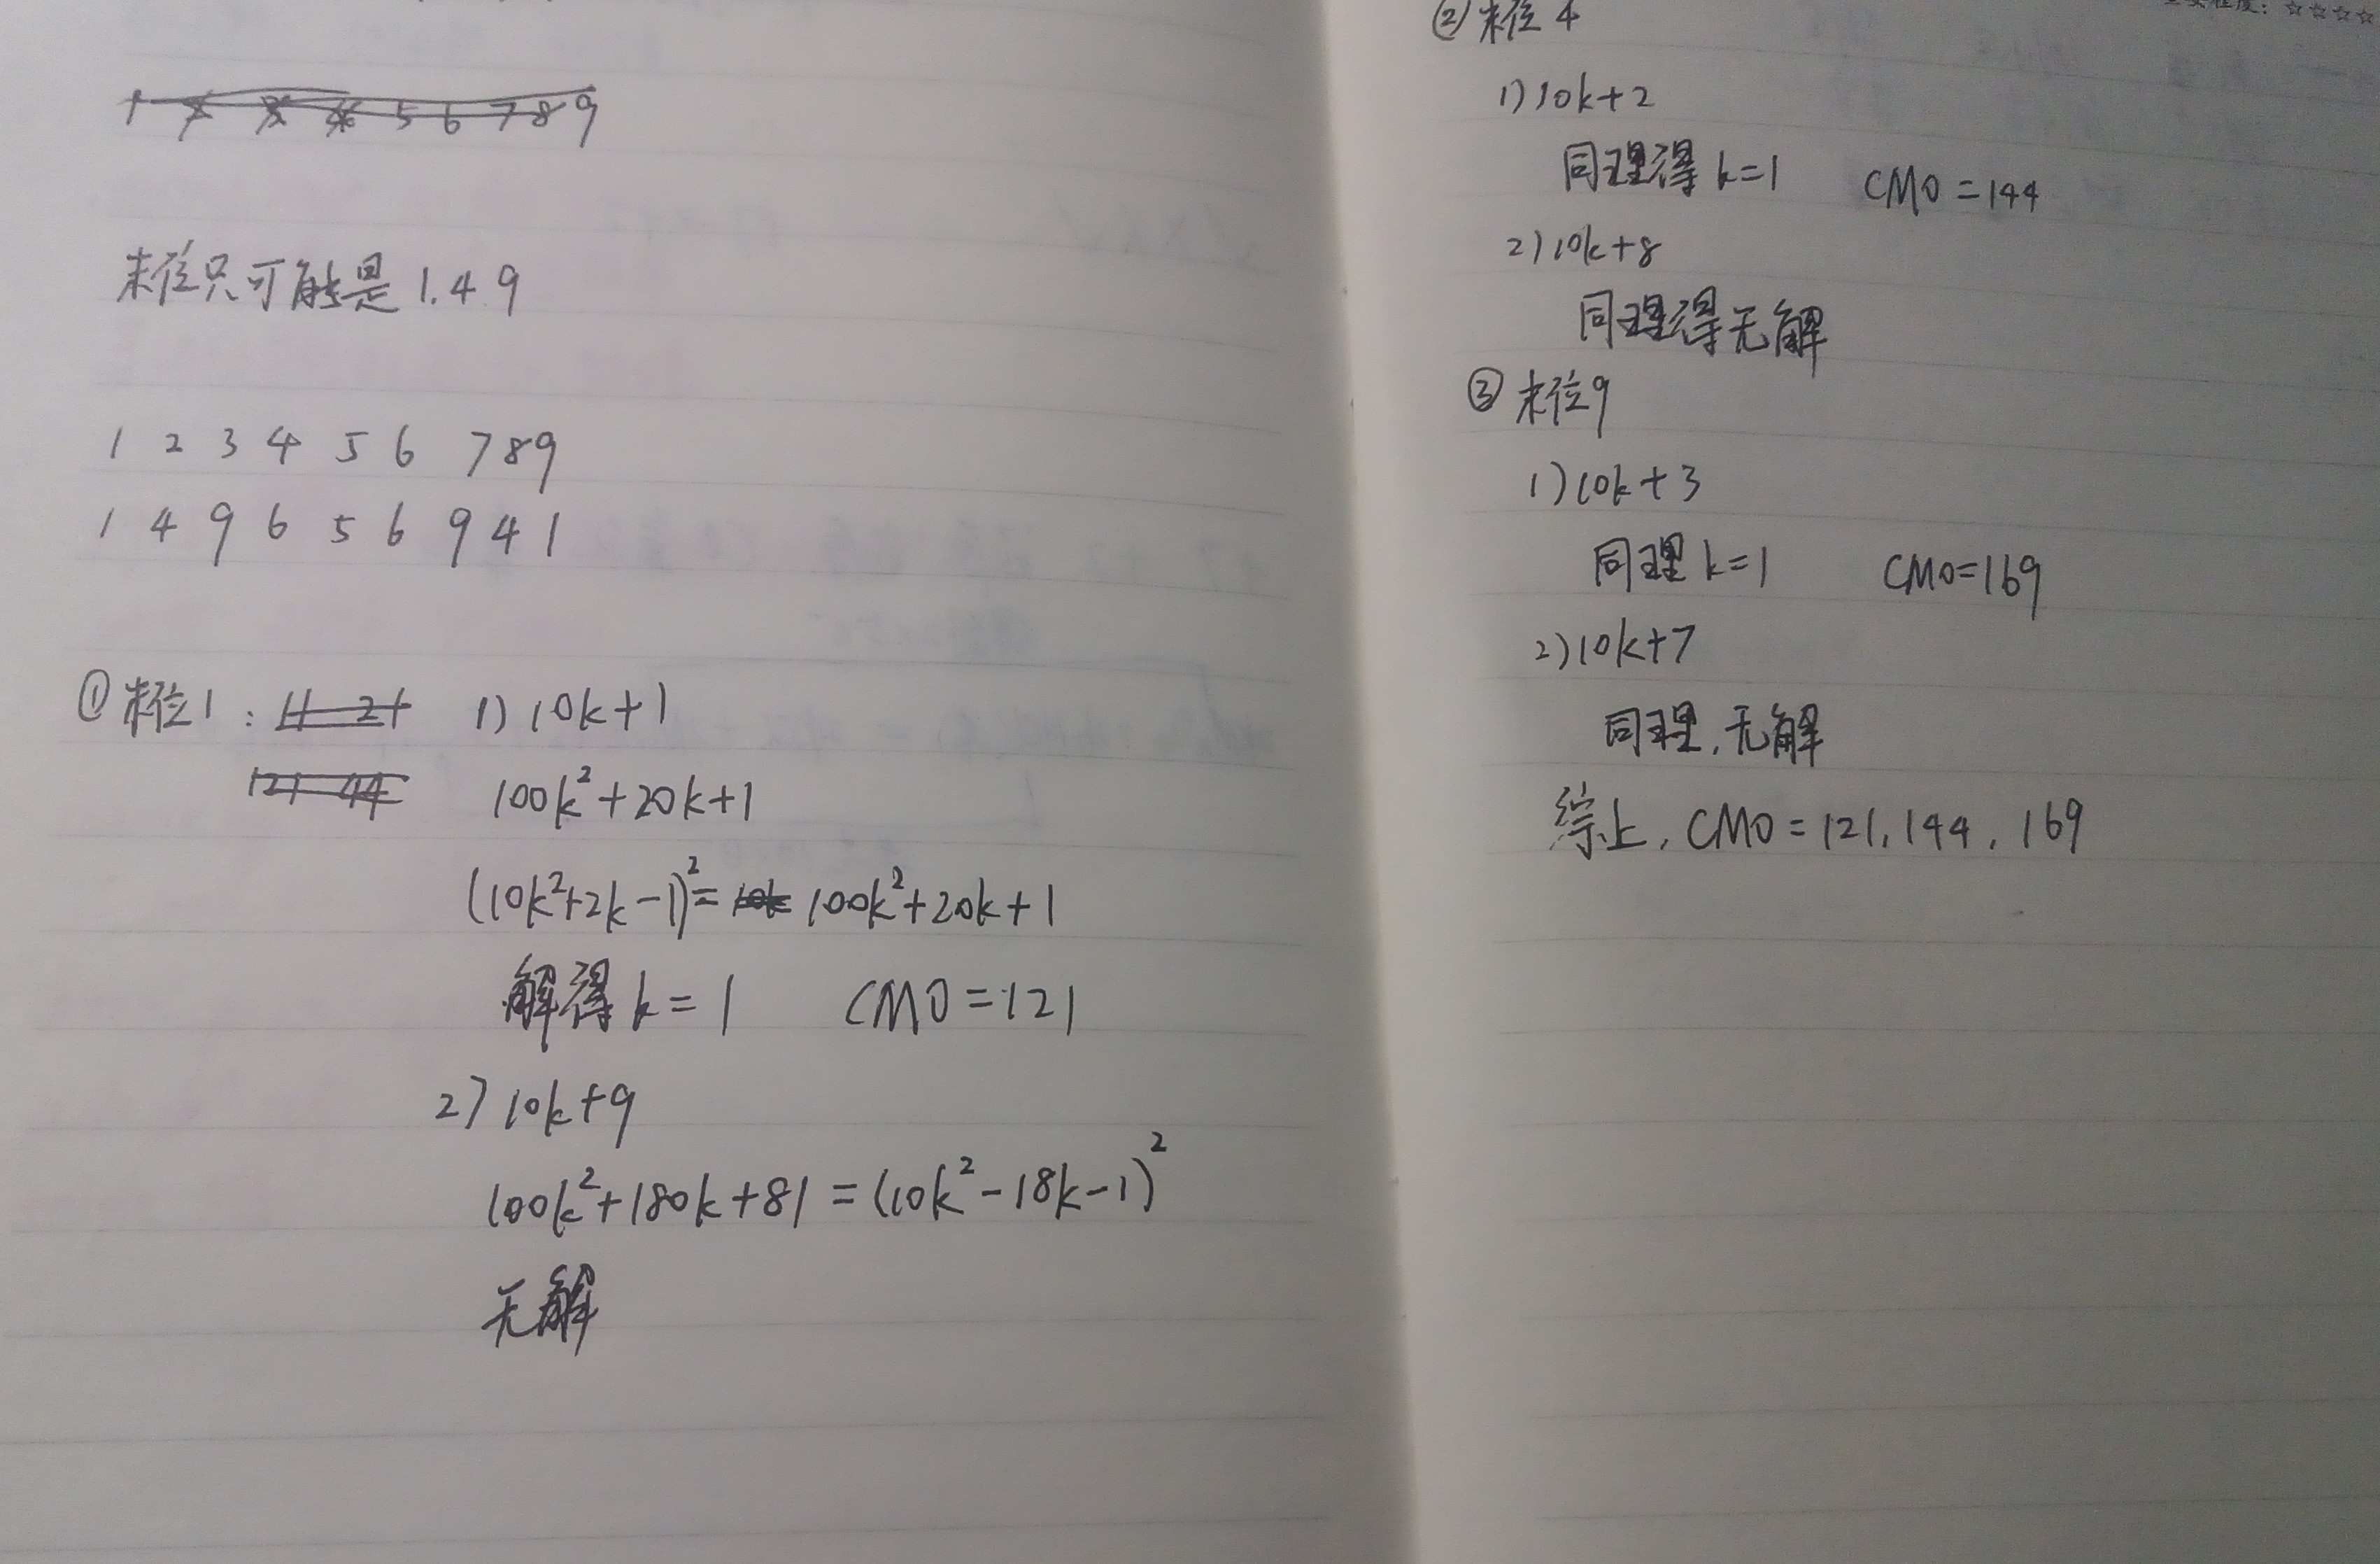 1 2 3 4 5 6 7 8 9
末位只可能是 1.4 9
1 2 3 4 5 6 7 8 9
1 4 9 6 5 6 9 4 1
① 末位1: 11 21 1) 10k+1
121 44 100k²+20k+1
(10k²+2k-1)²= 10k 100k²+20k+1
解得 k=1 CMO=121
2) 10k+9
100k²+180k+81=(10k²-18k-1)²
无解
② 末位 4
1) 10k+2
同理得 k=1 CMO=144
2) 10k+8
同理得无解
③ 末位9
1) 10k+3
同理 k=1 CMO=169
2) 10k+7
同理,无解
综上, CMO=121,144,169